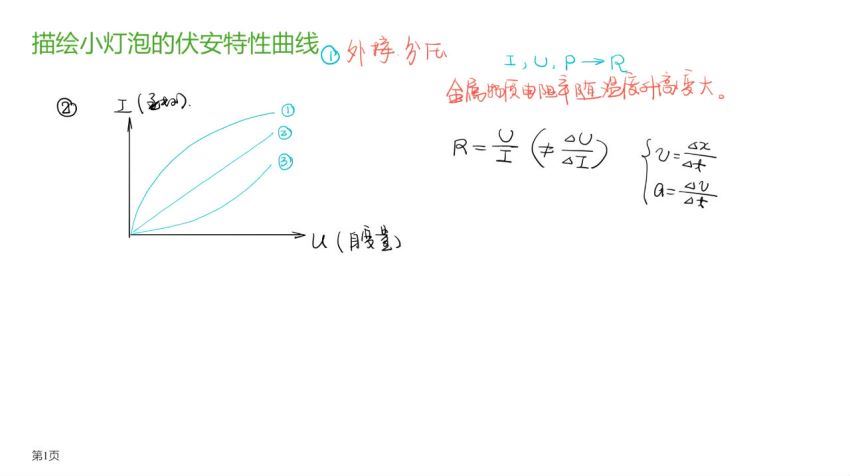 描绘小灯泡的伏安特性曲线 ① 外接 分压
I, U, P → R
金属物质电阻率随温度升高变大。
② I (函数).
①
②
③
U (自变量)
R = U/I (≠ ΔU/ΔI)
{ v = Δx/Δt
a = Δv/Δt
第1页